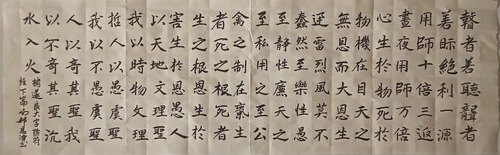 瞽者善聽聾者
善眎絕利一源
用師十倍三返
晝夜用師万倍
心生於物死於
物機在目天之
無恩而大恩生
迅雷烈風莫不
蠢然至樂性愚
至靜性廉天之
至私用之至公
禽之制在氣生
者死之根死者
生之根恩生於
害生於恩愚人
以天地文理聖
我以時物文理
哲人以愚虞聖
我以不愚虞聖
人以奇其聖我
以不奇其聖沉
水入火
褚遂良大字陰符
經下篇